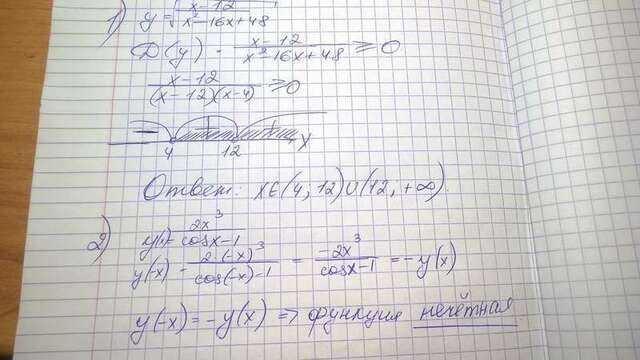 1) y = √(x-12 / x²-16x+48)
D(y) - x-12 / x²-16x+48 ≥ 0
x-12 / (x-12)(x-4) ≥ 0
- + + 
4 12 x
Ответ: x∈(4; 12)∪(12; +∞)
2) y(x) - 2x³ / cosx-1
y(-x) - 2(-x)³ / cos(-x)-1 = -2x³ / cosx-1 = -y(x)
y(-x) = -y(x) => функция нечётная